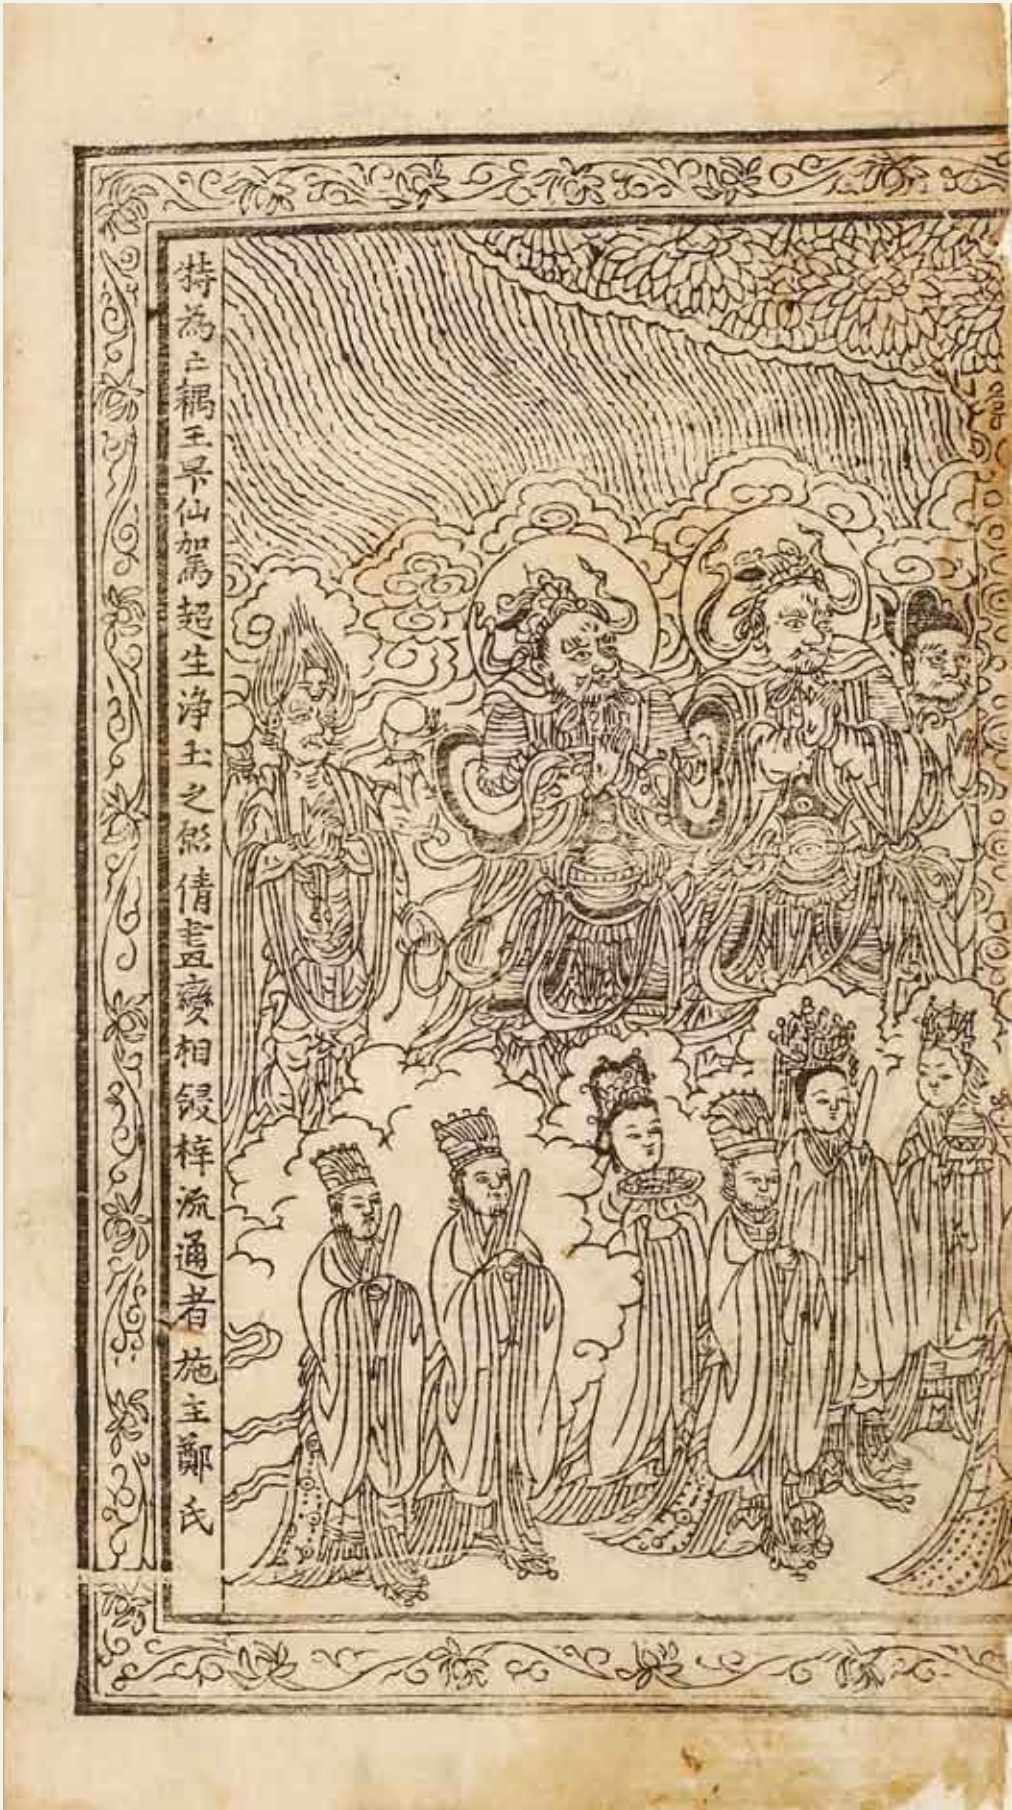 特為亡耦王杲仙駕超生淨土之願倩畫變相鋟梓流通者施主鄭氏